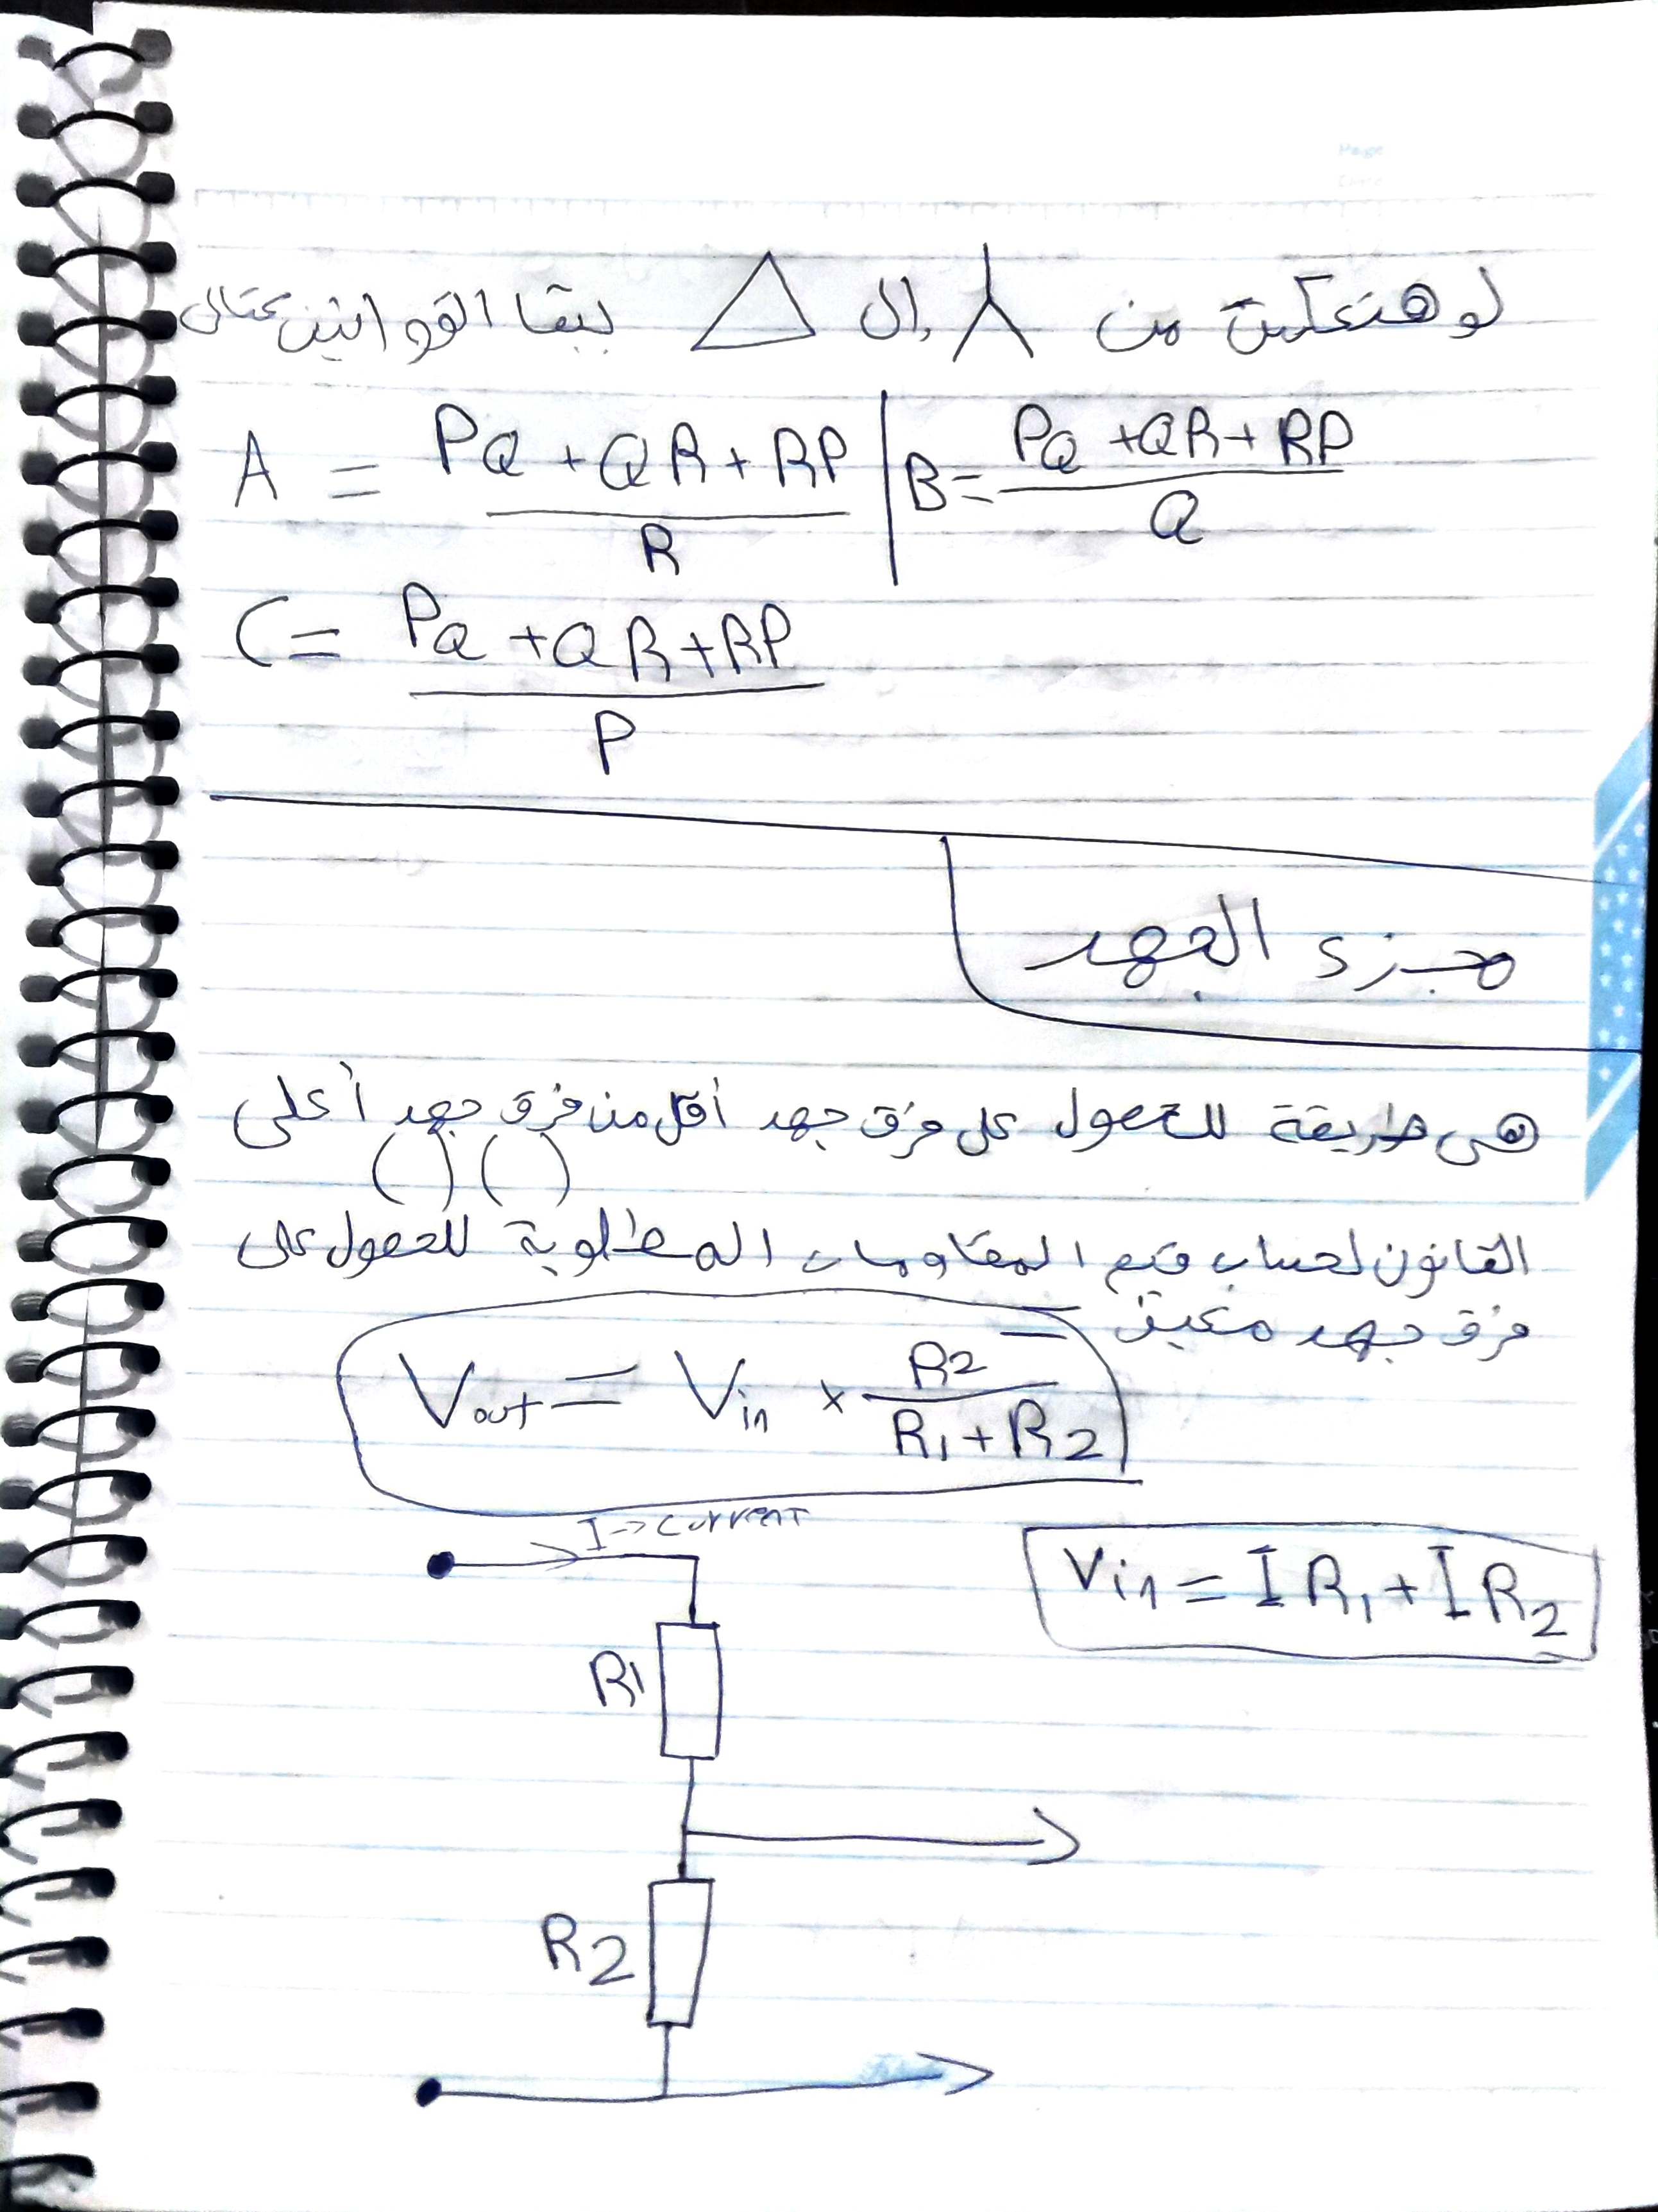 Page
Date
لو هتعكس من ⅄ ال △ يبقا القوانين كتالى
A = PQ + QR + RP / R | B = PQ + QR + RP / Q
C = PQ + QR + RP / P
مجزء الجهد
هى طريقة للحصول على فرق جهد أقل من فرق جهد أعلى
( ) ( )
القانون لحساب قيم المقاومات المطلوبة للحصول على
فرق جهد معين
Vout = Vin × R2 / R1 + R2
I → current
Vin = I R1 + I R2
R1
R2